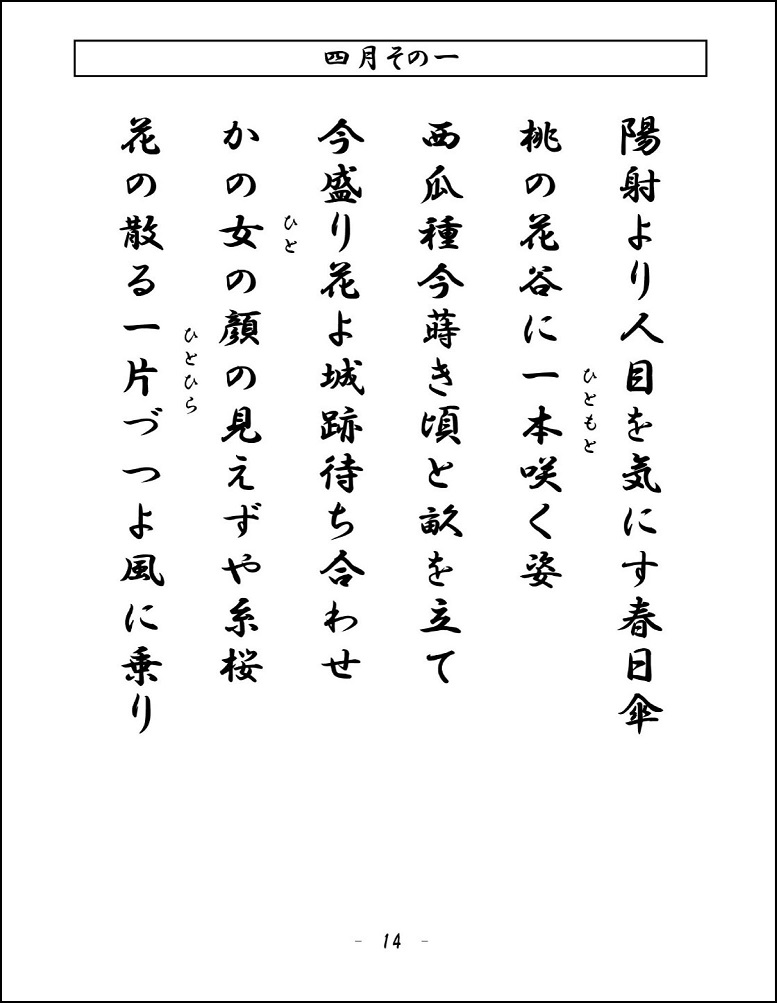 四月その一
陽射より人目を気にす春日傘
桃の花谷に一本咲く姿
ひともと
西瓜種今蒔き頃と畝を立て
今盛り花よ城跡待ち合わせ
かの女の顔の見えずや糸桜
ひと
花の散る一片づつよ風に乗り
ひとひら
- 14 -